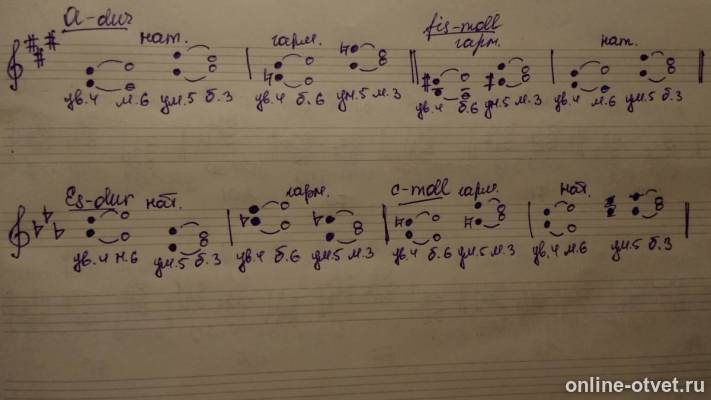 A-dur нат. гарм. fis-moll гарм. нат.
ув.4 м.6 ум.5 б.3 ув.4 б.6 ум.5 м.3 ув.4 б.6 ум.5 м.3 ув.4 м.6 ум.5 б.3
Es-dur нат. гарм. c-moll гарм. нат.
ув.4 м.6 ум.5 б.3 ув.4 б.6 ум.5 м.3 ув.4 б.6 ум.5 м.3 ув.4 м.6 ум.5 б.3
online-otvet.ru